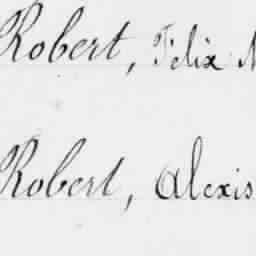 Robert, Felix
Robert, Alexis